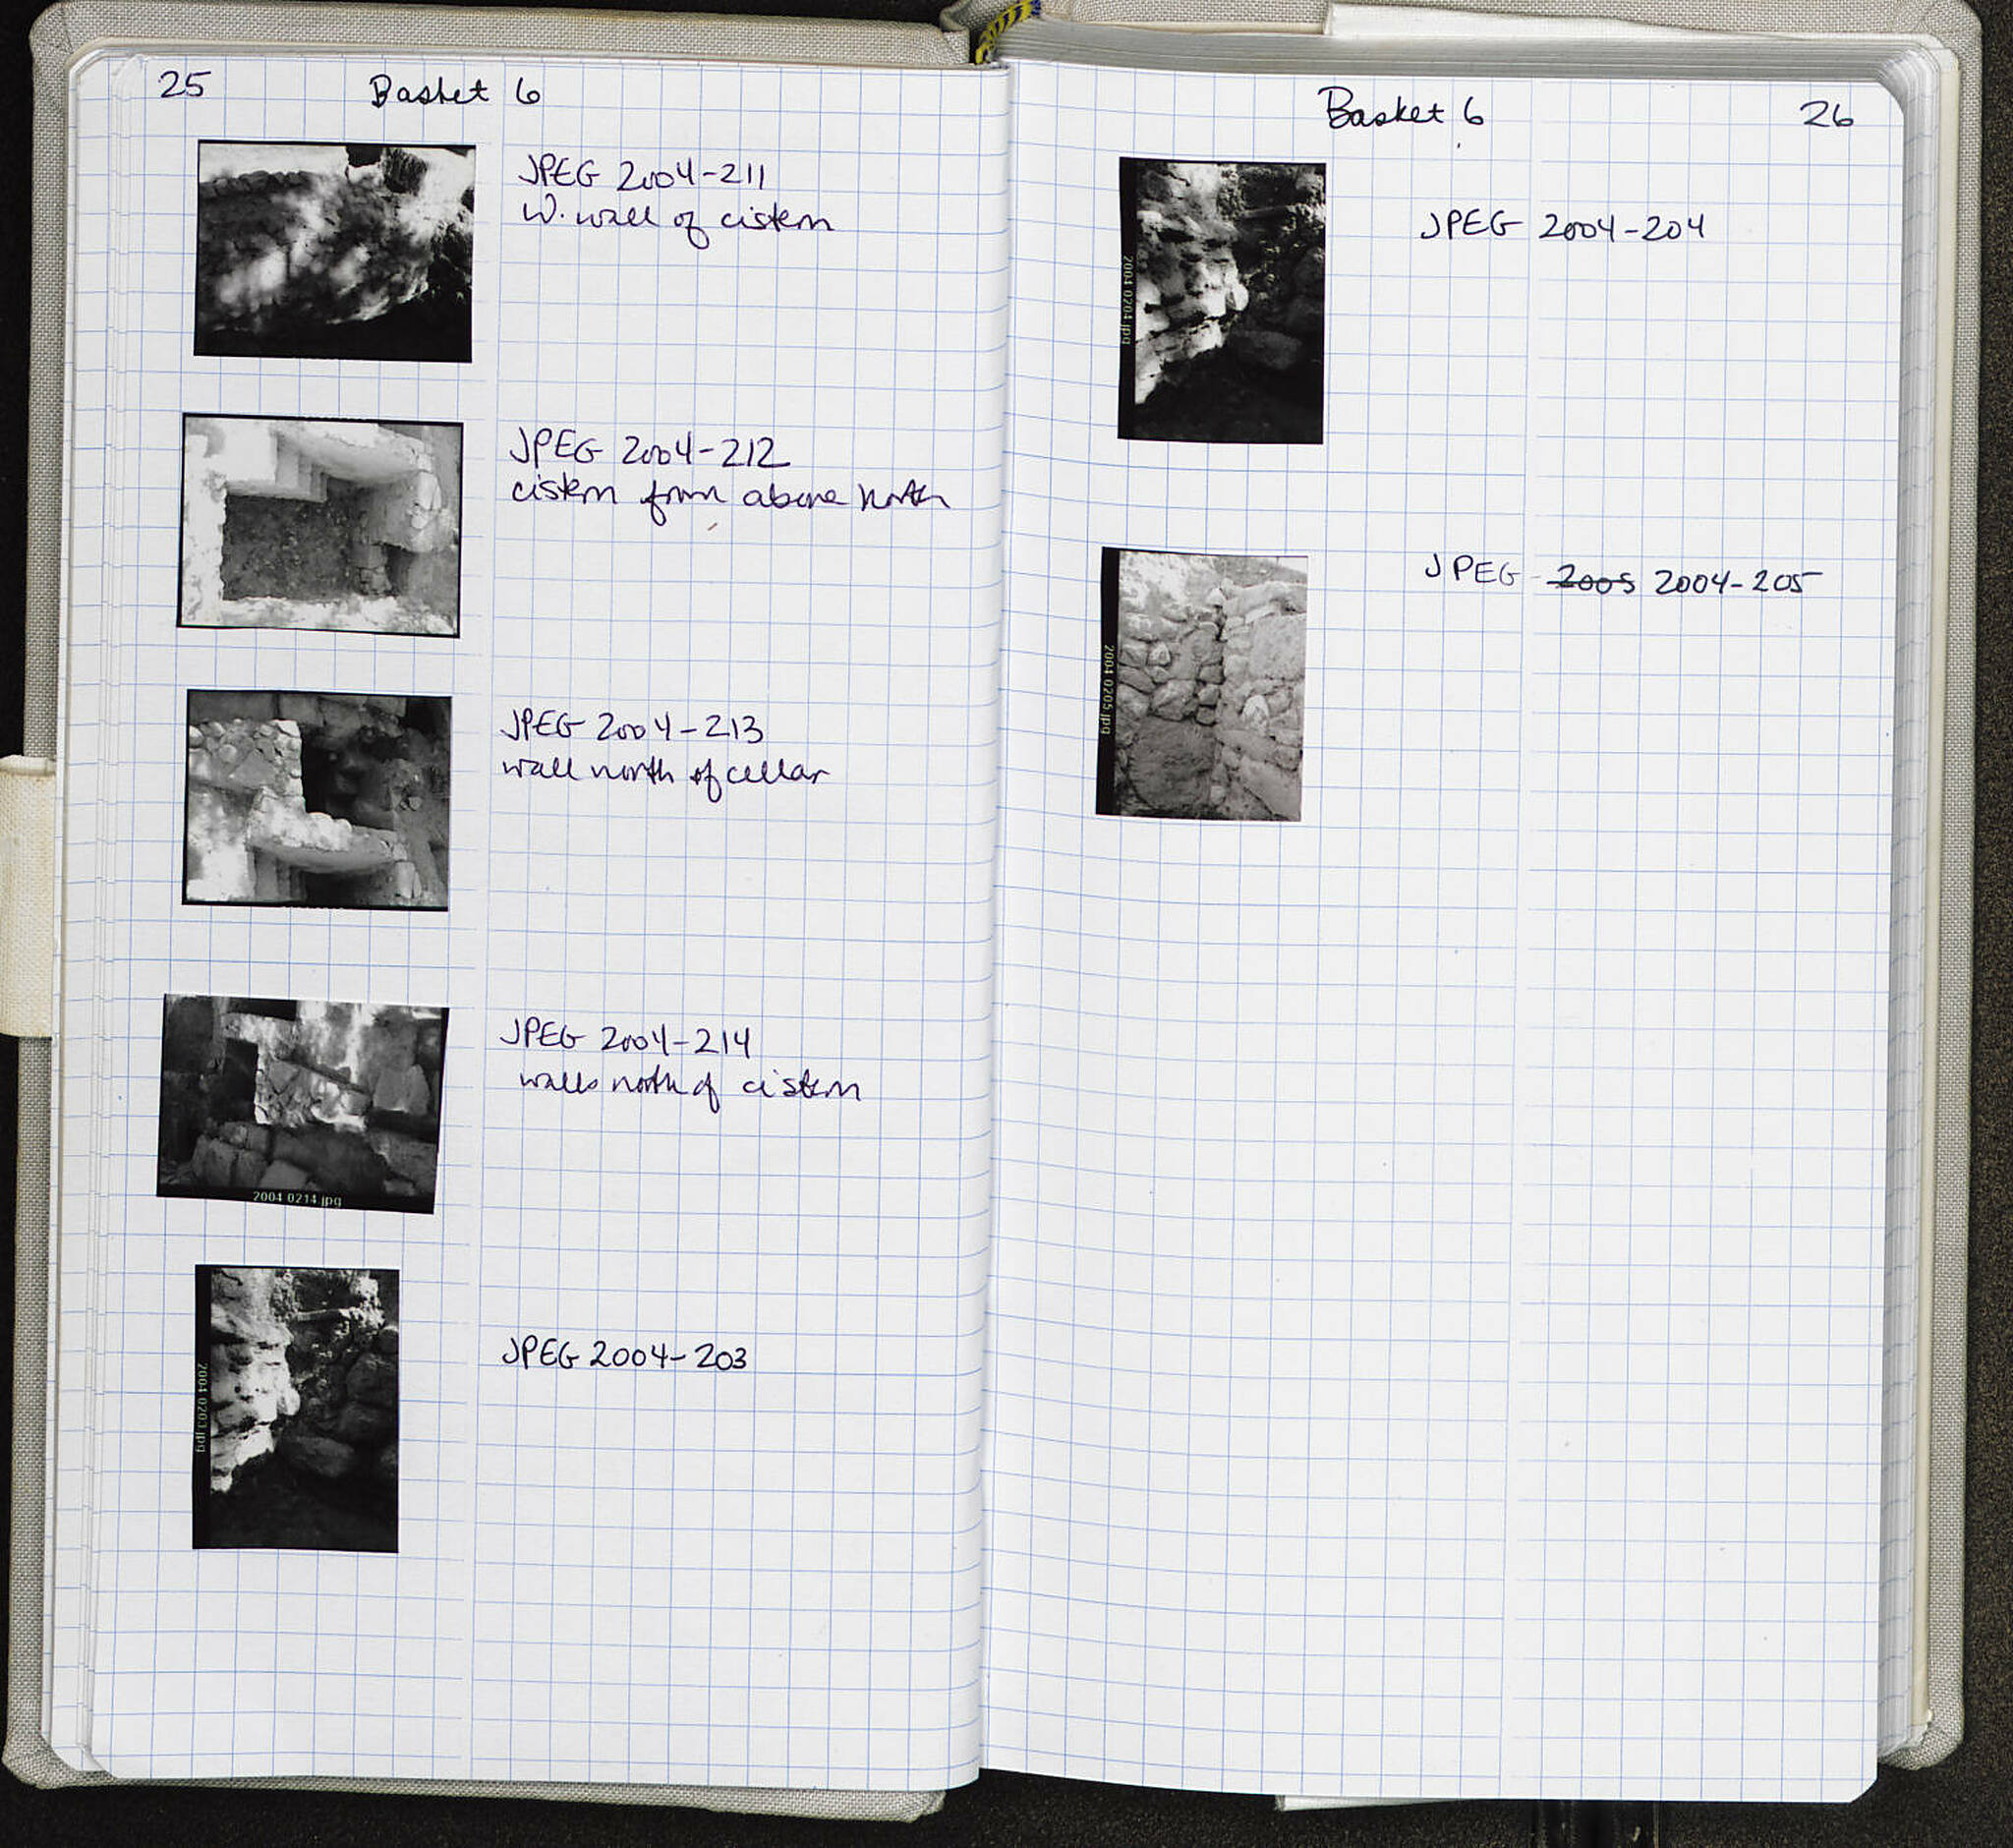 25 Basket 6
JPEG 2004-211
W. wall of cistern
JPEG 2004-212
cistern from above north
JPEG 2004-213
wall north of cellar
JPEG 2004-214
walls north of cistern
2004 0214.jpg
JPEG 2004-203
2004 0203.jpg
Basket 6 26
JPEG 2004-204
2004 0204.jpg
JPEG 2005 2004-205
2004 0205.jpg